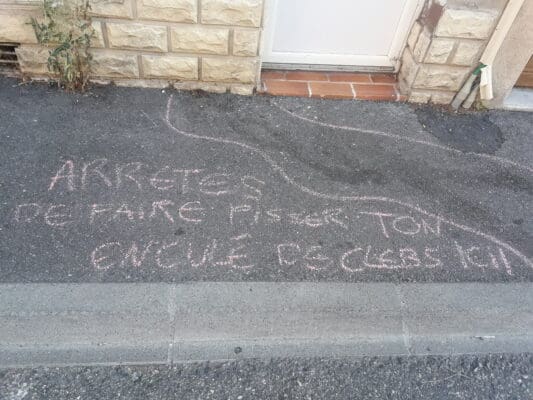 ARRETES
DE FAIRE PISSER TON
ENCULÉ DE CLEBS ICI!